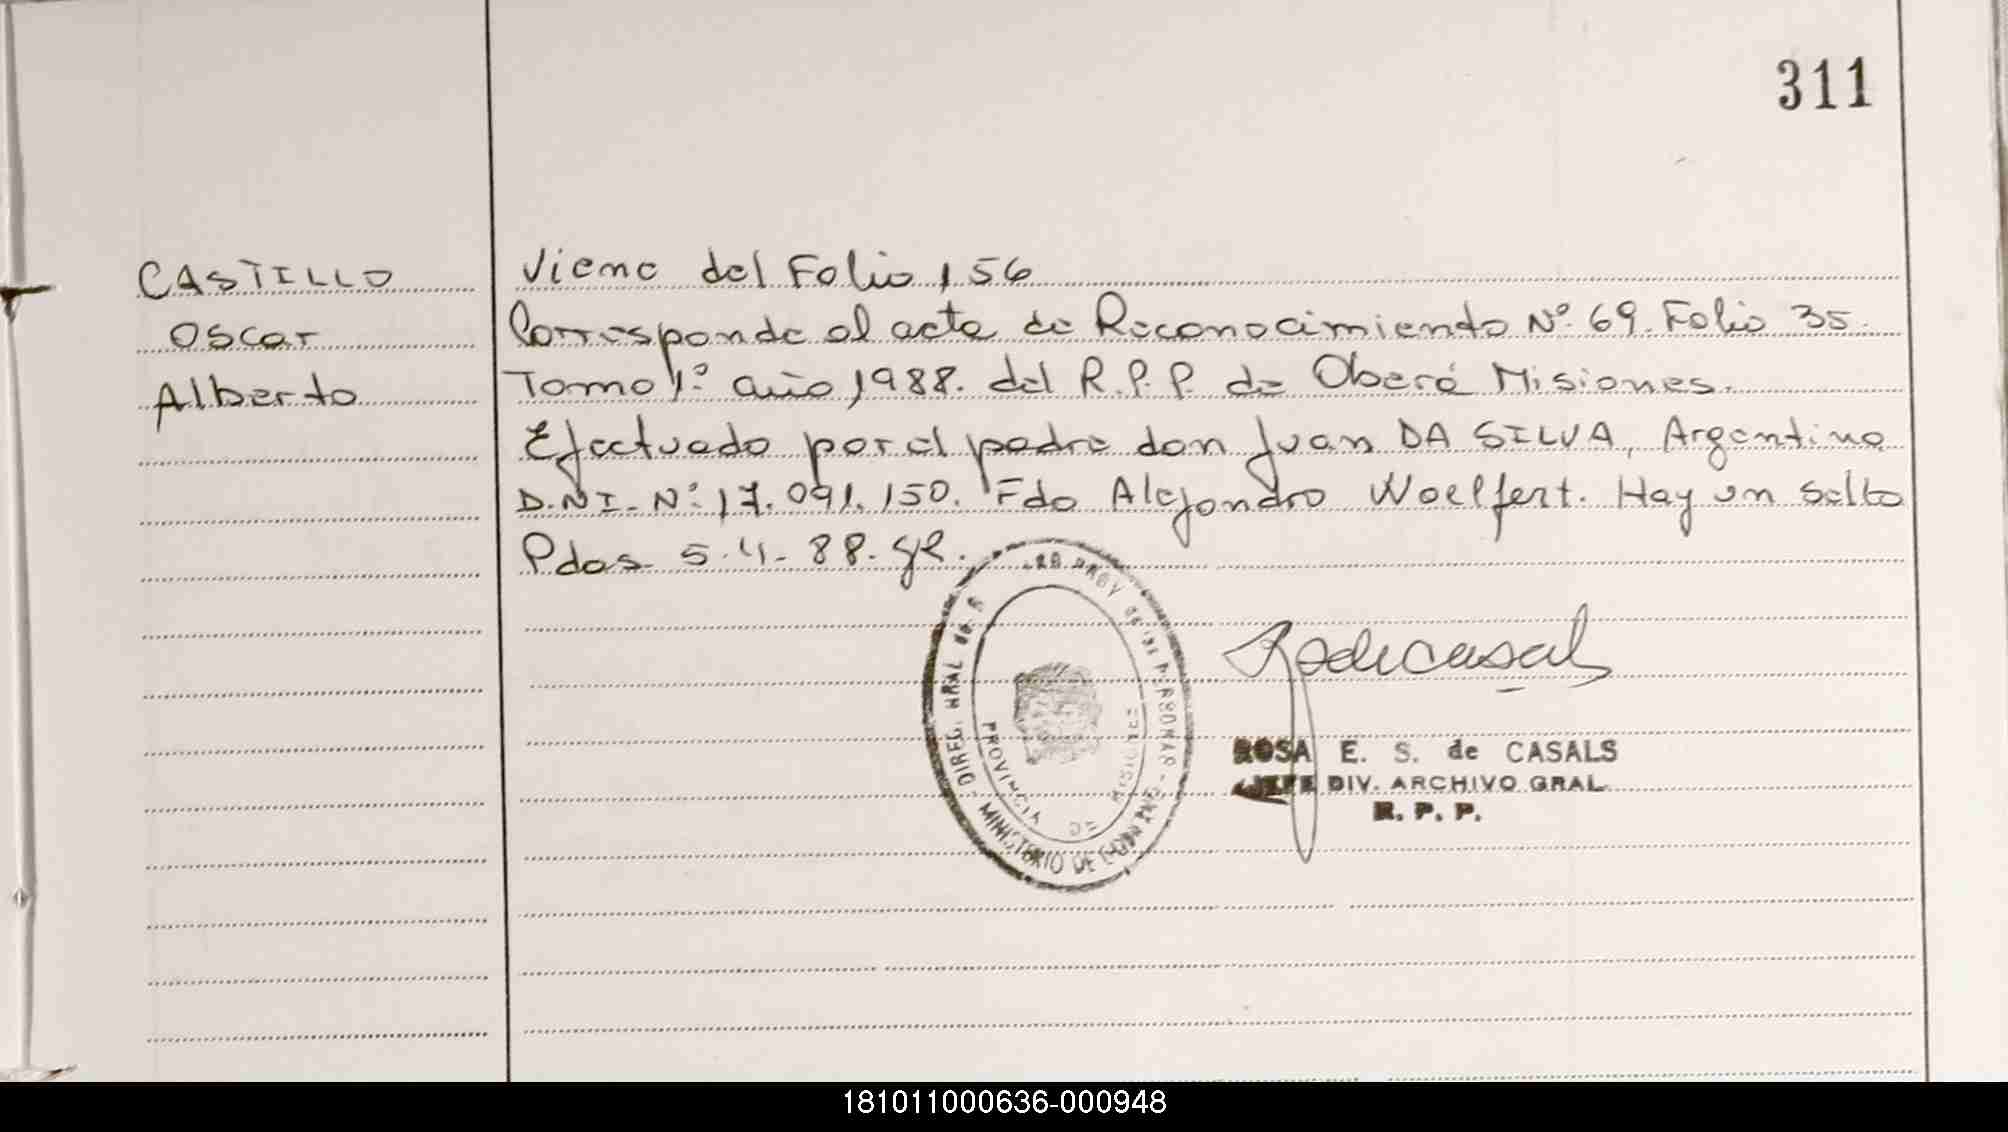 311
CASTILLO
Oscar
Alberto
Viene del Folio 156
Corresponde al acta de Reconocimiento Nº 69. Folio 35.
Tomo 1º año 1988. del R.P.P. de Oberá Misiones.
Efectuado por el padre don Juan DA SILVA, Argentino
D.N.I. Nº 17.091.150. Fdo Alejandro Woelfert. Hay un sello
Pdas 5.4-88.
DIREC. GRAL de
MINISTERIO DE
PROVINCIA DE MISIONES
ROSA E. S. de CASALS
JEFE DIV. ARCHIVO GRAL.
R. P. P.
181011000636-000948